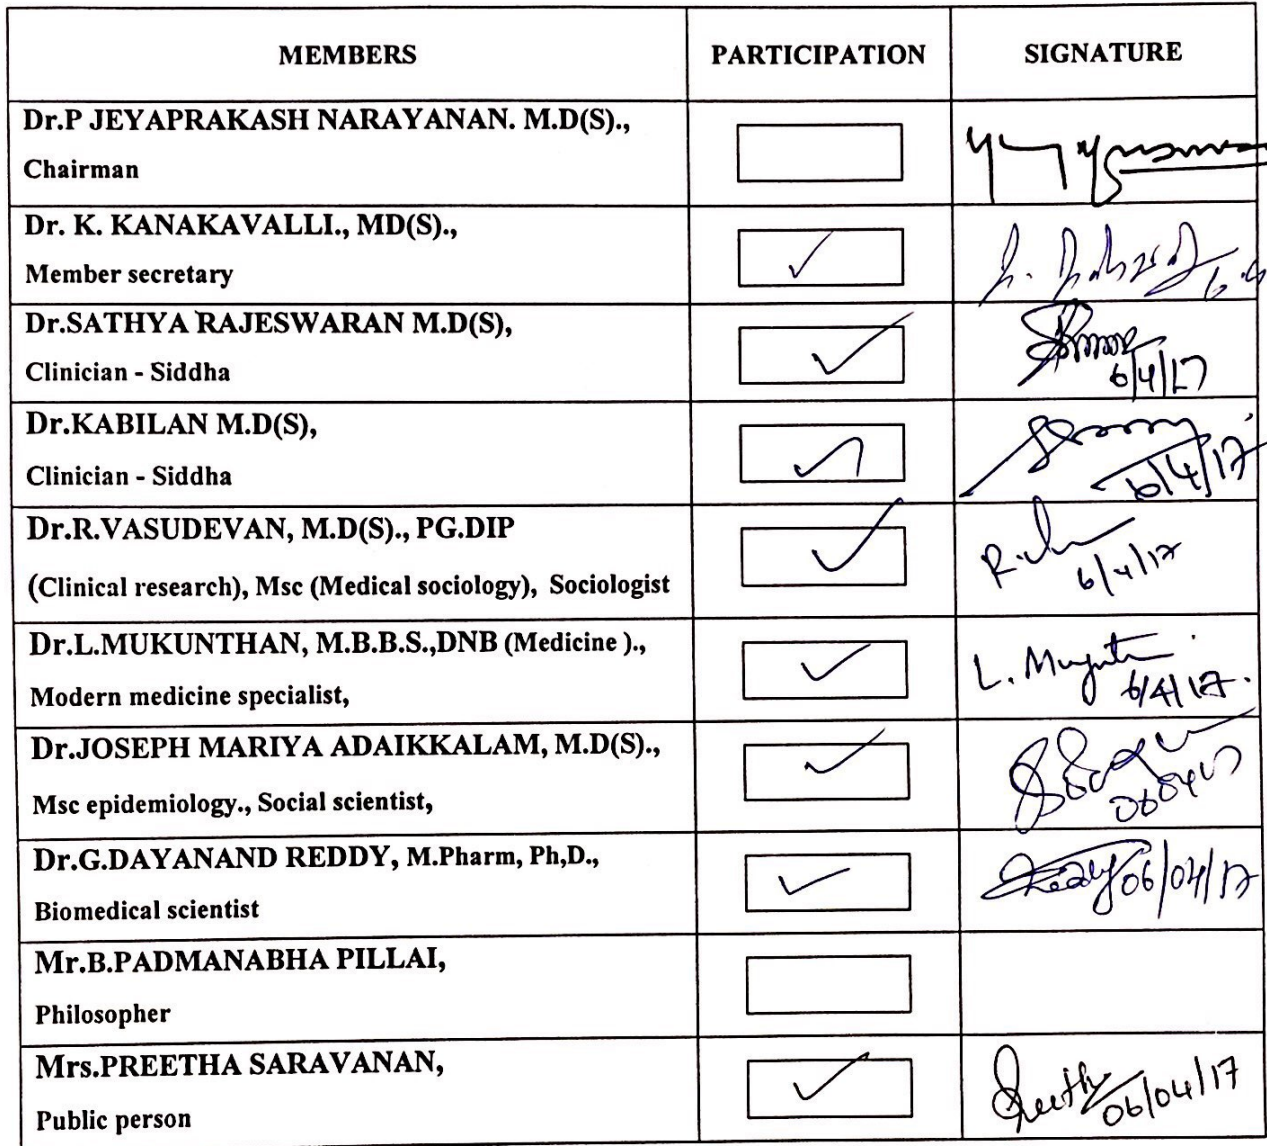 MEMBERS PARTICIPATION SIGNATURE
Dr.P JEYAPRAKASH NARAYANAN. M.D(S).,
Chairman
Dr. K. KANAKAVALLI., MD(S).,
Member secretary
Dr.SATHYA RAJESWARAN M.D(S),
Clinician - Siddha
6/4/17
Dr.KABILAN M.D(S),
Clinician - Siddha
6/4/17
Dr.R.VASUDEVAN, M.D(S)., PG.DIP
(Clinical research), Msc (Medical sociology), Sociologist
6/4/17
Dr.L.MUKUNTHAN, M.B.B.S.,DNB (Medicine ).,
L.
Modern medicine specialist,
6/4/17.
Dr.JOSEPH MARIYA ADAIKKALAM, M.D(S).,
Msc epidemiology., Social scientist,
Dr.G.DAYANAND REDDY, M.Pharm, Ph,D.,
Reddy 06/04/17
Biomedical scientist
Mr.B.PADMANABHA PILLAI,
Philosopher
Mrs.PREETHA SARAVANAN,
Preetha
Public person
06/04/17